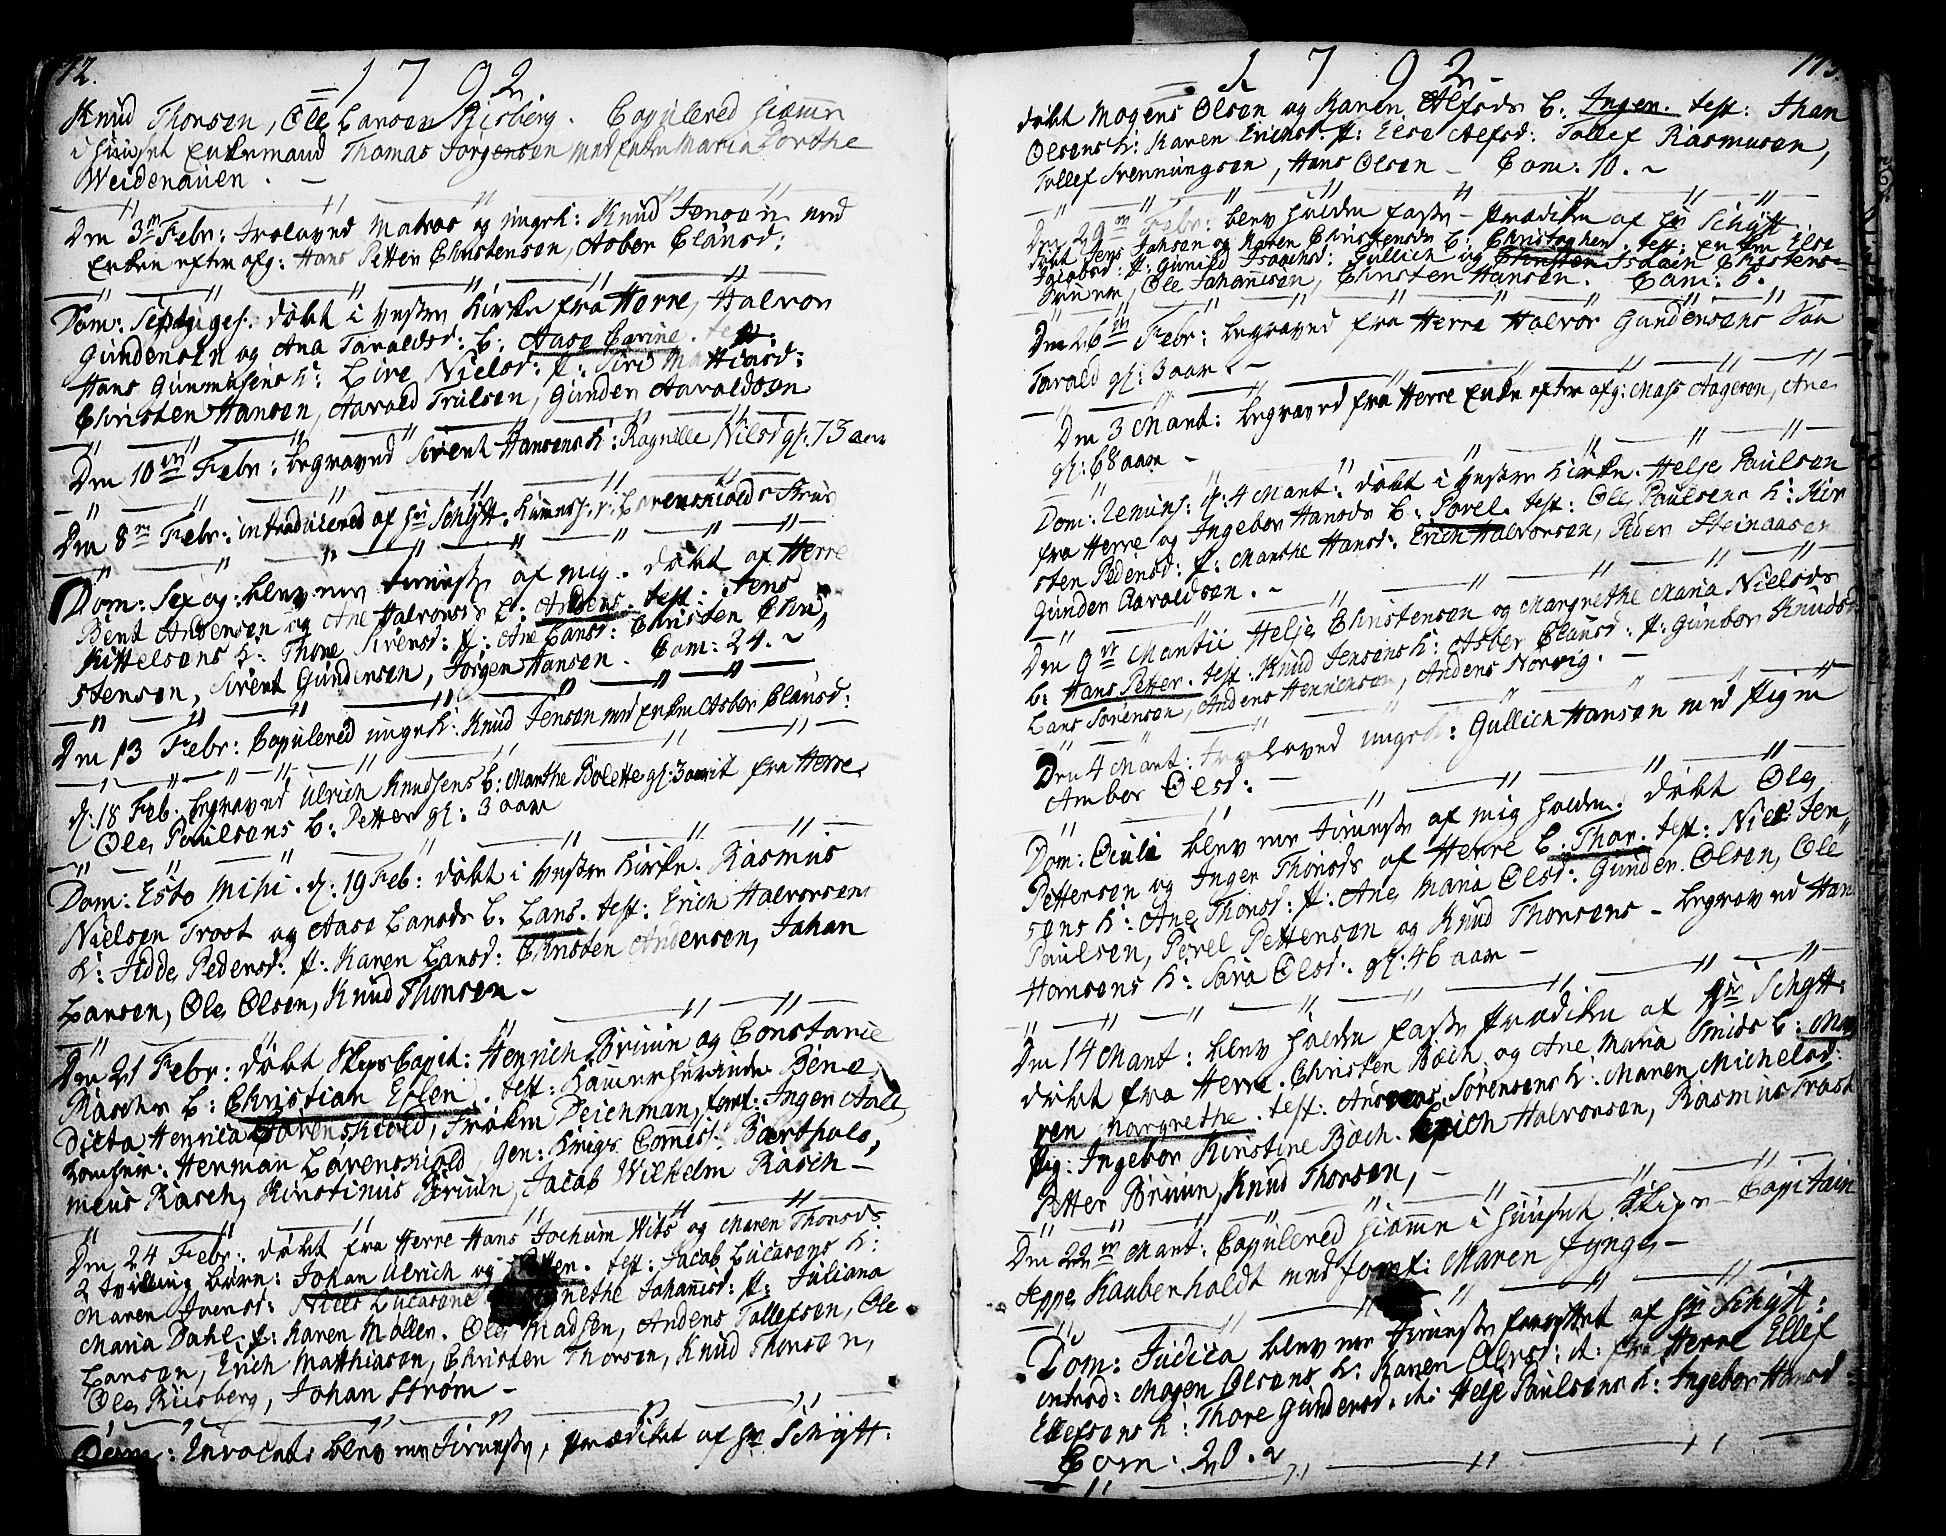 12.
1792
Knud Thorsen, Ole Larsen Risberg. Copulered hiemme
i Huuset Enkemand Thomas Jorgensen med Enken Maria Dorthe
Weidenauen. -
Den 3die Febr: troloved Matros og ungk: Knud Jensen med
Enken efter afg: Hans Petter Christensen, Asber Clausd:
Dom: Septuages. döbt i Vestre Kirke fra Herre, Halvor
Gundersen og Ana Taraldsd: b: Aase Carine. test:
Hans Gunmusens k: Live Nielsd: p: Siri Matthiasd:
Christen Hansen, Aarold Trulsen, Gunder Aaraldsen
Den 10de Febr: begraved Sivert Hansens k: Ragnille Nilsd gl: 75 aar
Den 8de Febr: introducered af Hr Schytt. Kammerh: v: Lövenskiolds Frue
Dom: Sexag: blev mes tieniste af mig. döbt af Herre
Bent Andersen og Ane Halvorsds b: Anders. test: Jens
Kittelsens k: Thore Siversd: p: Ane Larsd: Christen Chri,
stensen, Sivert Gundersen, Jörgen Hansen. Com: 24. ~
Den 13 Febr: Copulered ungk: Knud Jensen med Enken Asber Clausd:
d: 18 Feb. begraved Ulrich Knudsens b: Marthe Bolette gl: 3 aar it fra Herre
Ole Paulsens b: Petter gl: 3 aar
Dom: Esto Mihi. d: 19 Feb: döbt i Vestre Kirke. Rasmus
Nielsen Trost og Aase Larsds b. Lars. test: Erich Halvorsens
k: Jidde Pedersd: p: Karen Larsd: Christen Andersen, Johan
Larsen, Ole Olsen, Knud Thorsen -
Den 21 Febr: döbt Skips Capit: Henrich Bruun og Constance
Raschs b: Christian Esben. test: Kammerherinde Bene,
dicta Henrica Lövenskiold, Fröken Deichman, Jomf: Inger Aall
Herman Lövenskiold, Gen: Krigs Comiss: Bartholo,
meus Rasch, Kirstinus Bruun, Jacob Wilhelm Rasch -
Den 24 Febr: döbt fra Herre Hans Jochum Nits og Maren Thorsds
2 tvilling börn: Johan Ulrich og Petter. test: Jacob Lucasens k:
Maren Iversd: Niels Lucasens Johannisd: p: Juliana
Maria Dahl. p: Karen Möller. Ole Madsen, Anders Tollefsen, Ole
Larsen, Erich Matthiasen, Christen Thorsen, Knud Thorsen,
Ole Riisberg, Johan Ström -
Dom: Invocat: blev mes tieniste, prædiket af Hr Schytt:
113.
1792 -
döbt Mogens Olsen og Karen Alfsds b: Inger. test: Jhan
Olsens k: Karen Erichsd. p: Else Alfsd: Tollef Rasmusen,
Tollef Svenningsen, Hans Olsen - Com. 10. ~
Den 22de Febr: blev holden faste-prædiken af Hr Schytt.
döbt Jens Jahsen og Karen Christensds b: Christopher. test: Enken Else
Jacobsd: p: Gunild Isaachsd: Gullich og Isaach Christens-
Ole Johannesen, Christen Hansen. Com: 5.
Den 26de Febr: begraved fra Herre Halvor Gundersens Sön
Tarald gl: 3 aar. -
Den 3 Mart: begraved fra Herre Enken efter afg: Mass Aageson, Ane
gl: 68 aar -
Dom: Remins: d: 4 Mart: döbt i Vestre Kirke. Helje Paulsen
fra Herre og Ingebor Hansds b: Povel. test: Ole Paulsens k: Kir
sten Pedersd: p: Marthe Hansd: Erich Halvorsen, Peder Steinaasen
Gunder Aaraldsen. -
Den 9de Martii Helje Christensen og Margrethe Maria Nielsds
b: Hans Petter. test. Knud Jensens k: Asber Clausd: p: Gunbor Knudsd
Lars Sörensen, Anders Henrichsen, Anders Norvig. -
Den 4 Mart: troloved ungk: Gullich Hansen med pigen
Amber Olsd: -
Dom: Oculi blev mes tieniste af mig holden. döbt Ole
Pettersen og Inger Thorsds af Herre b: Thor. test: Niels Jen,
sens k: Ane Thorsd: p: Ane Maria Olsd: Gunder Olsen, Ole
Paulsen, Povel Pettersen og Knud Thorsens - begraved Han
Hansens k: Sara Olsd: gl: 46 aar -
Den 14 Mart: blev holden faste prædiken af Hr Schytt:
döbt fra Herre. Christen Bæch og Ane Maria Smids b: Ma
ren Margrethe. test: Andreas Sörensens k: Maren Michelsd:
pig: Ingebor Kirstine Bæch. Erich Halvorsen, Rasmus Trost
Petter Bruun, Knud Thorsen, -
Den 22de Mart: Copulered hiemme i Huuset Skips Capitain
Jeppe Kaabenholdt med Jomf: Maren Jynge -
Dom: Judica blev mes tieniste forrettet af Hr Schytt:
introd: Mogen Olsens k: Karen Olevsd: it: fra Herre Ellef
Ellefsens k: Thore Gundersd: it: Helje Paulsens k: Ingebor Hansd:
Com: 20. ~